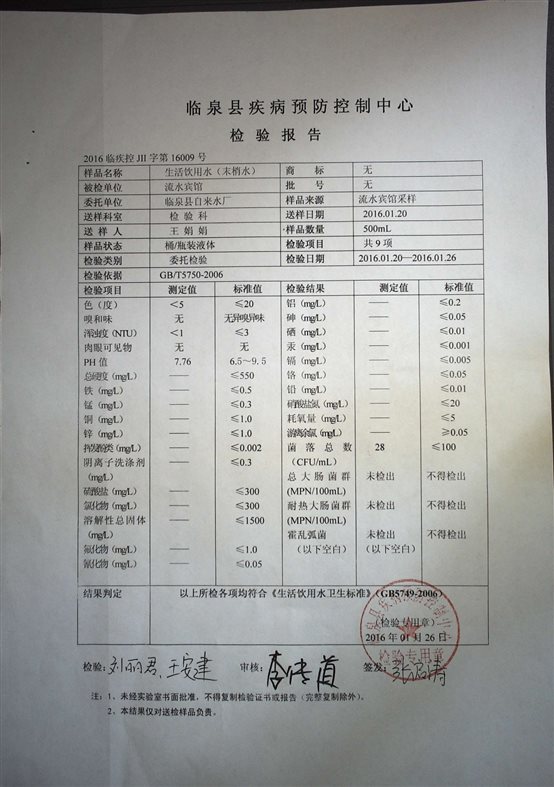 临泉县疾病预防控制中心
检验报告
2016 临疾控 JII 字第 16009 号
样品名称 生活饮用水（末梢水） 商 标 无
被检单位 流水宾馆 批 号 无
委托单位 临泉县自来水厂 样品来源 流水宾馆采样
送样科室 检 验 科 送样日期 2016.01.20
送 样 人 王 娟娟 样品数量 500mL
样品状态 桶/瓶装液体 检验项目 共 9 项
检验类别 委托检验 检验日期 2016.01.20—2016.01.26
检验依据 GB/T5750-2006
检验项目 测定值 标准值 检验结果 测定值 标准值
色（度） ＜5 ≤20 铝（mg/L） —— ≤0.2
嗅和味 无 无异嗅异味 砷（mg/L） —— ≤0.05
浑浊度（NTU） ＜1 ≤3 硒（mg/L） —— ≤0.01
肉眼可见物 无 无 汞（mg/L） —— ≤0.001
PH 值 7.76 6.5～9.5 镉（mg/L） —— ≤0.005
总硬度（mg/L） —— ≤550 铬（mg/L） —— ≤0.05
铁（mg/L） —— ≤0.5 铅（mg/L） —— ≤0.01
锰（mg/L） —— ≤0.3 硝酸盐氮（mg/L） —— ≤20
铜（mg/L） —— ≤1.0 耗氧量（mg/L） —— ≤5
锌（mg/L） —— ≤1.0 游离余氯（mg/L） —— ≥0.05
挥发酚类（mg/L） —— ≤0.002 菌落总数 28 ≤100
阴离子洗涤剂 —— ≤0.3 （CFU/mL）
（mg/L） 总大肠菌群 未检出 不得检出
硫酸盐（mg/L） —— ≤300 (MPN/100mL)
氯化物（mg/L） —— ≤300 耐热大肠菌群 未检出 不得检出
溶解性总固体 —— ≤1500 (MPN/100mL)
（mg/L） 霍乱弧菌 未检出 不得检出
氟化物（mg/L） —— ≤1.0 （以下空白） （以下空白）
氰化物（mg/L） —— ≤0.05
结果判定 以上所检各项均符合《生活饮用水卫生标准》（GB5749-2006）
（检验专用章）
2016 年 01 月 26 日
检验专用章
检验：刘丽君、王安建 审核： 签发：
注：1、未经实验室书面批准，不得复制检验证书或报告（完整复制除外）。
2、本结果仅对送检样品负责。